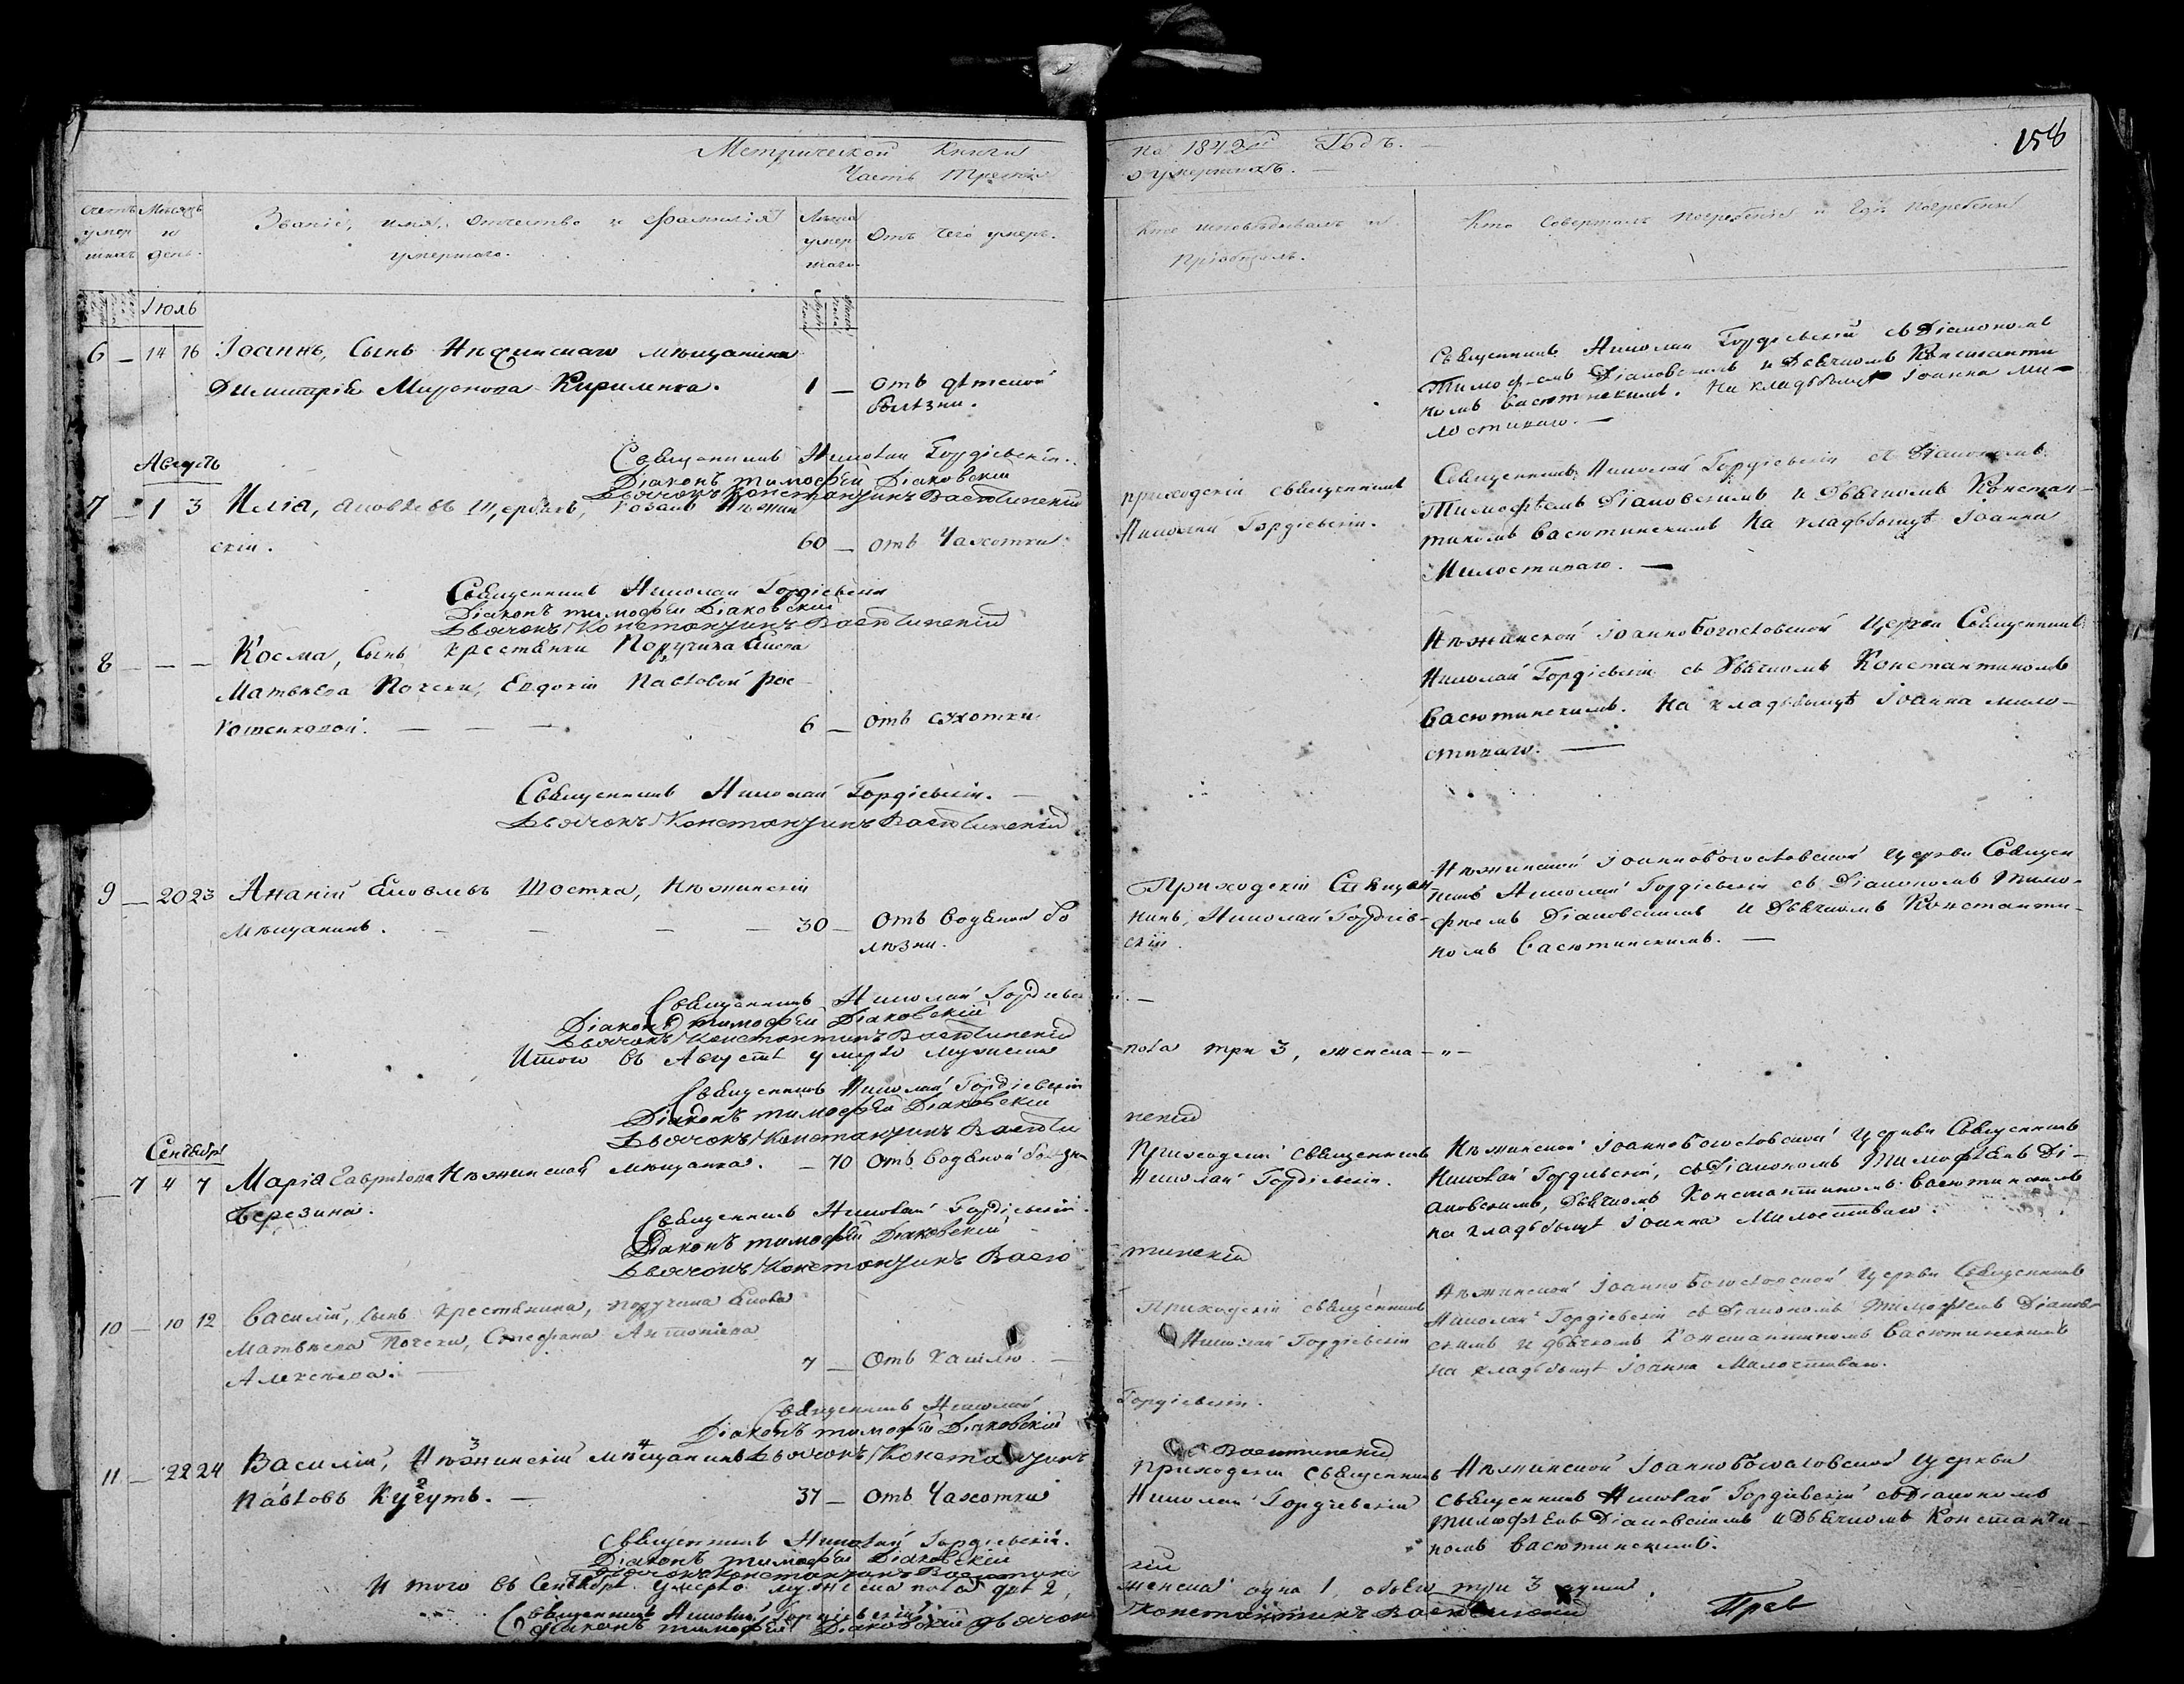 Метрической Книги
Часть третія
на 1842й Годъ.
о умершихъ.
158
Счетъ умершихъ
Мѣсяцъ и день.
Званіе, имя, отчество и фамилія умершаго.
Лѣта умершаго
Отъ чего умеръ.
Кто исповѣдывалъ и пріобщалъ.
Кто совершалъ погребеніе и гдѣ погребены
Іюль
6 — 14 16 Іоаннъ, сынъ Нѣжинскаго мѣщанина
Димитрія Миронова Кириленка. 1 — отъ дѣтской
болѣзни.
Священникъ Николай Гордіевскій съ Діакономъ
Тимофеемъ Діаковскимъ и Дьячкомъ Константи
номъ Васютинскимъ. На кладбищѣ Іоанна Ми-
лостиваго. —
Священникъ Николай Гордіевскій.
Діаконъ Тимофей Діаковскій
Дьячокъ Константинъ Васютинскій
Августъ
7 — 1 3 Илія, Яковлевъ Щербакъ, козакъ Нѣжин
скій. 60 — отъ Чахотки
приходскій священникъ
Николай Гордіевскій.
Священникъ Николай Гордіевскій съ Діакономъ
Тимофѣемъ Діаковскимъ и Дьячкомъ Констан-
тиномъ Васютинскимъ на кладбищѣ Іоанна
Милостиваго. —
Священникъ Николай Гордіевскій
Діаконъ Тимофей Діаковскій
Дьячокъ Константинъ Васютинскій
8 — — — Косма, сынъ крестянки Поручика Якова
Матвѣева Почеки, Евдокіи Павловой
6 — отъ сухотки
Нѣжинской Іоанно Богословской Церкви Священникъ
Николай Гордіевскій съ Дьячкомъ Константиномъ
Васютинскимъ. На кладбищѣ Іоанна мило-
стиваго. —
Священникъ Николай Гордіевскій. —
Дьячокъ Константинъ Васютинскій
9 — 20 23 Ананій Яковлевъ Шостка, Нѣжинскій
мѣщанинъ. — — — — 30 — Отъ водяной бо
лѣзни.
Приходскій Священ-
никъ, Николай Гордіев-
скій.
Нѣжинской Іоанно Богословской Церкви Священ
никъ Николай Гордіевскій съ Діакономъ Тимо-
фѣемъ Діаковскимъ и Дьячкомъ Константи-
номъ Васютинскимъ. —
Священникъ Николай Гордіевскій. —
Діаконъ Тимофей Діаковскій
Дьячокъ Константинъ Васютинскій
Итого въ Августѣ умерло мужеска пола три 3, женска — „ —
Священникъ Николай Гордіевскій
Діаконъ Тимофей Діаковскій
Дьячокъ Константинъ Васютинскій
Сентябрь
— 7 4 7 Марія Гаврилова Нѣжинская мѣщанка. — 70 Отъ водяной болѣзни
Березина.
Приходскій священникъ
Николай Гордіевскій.
Нѣжинской Іоанно Богословской Церкви Священникъ
Николай Гордіевскій, съ Діакономъ Тимофѣемъ Ді-
аковскимъ, Дьячкомъ Константиномъ Васютинскимъ
на кладбищѣ Іоанна Милостиваго.
Священникъ Николай Гордіевскій.
Діаконъ Тимофей Діаковскій
Дьячокъ Константинъ Васютинскій
10 — 10 12 Василій, сынъ крестянина, поручика Якова
Матвѣева Почеки, Стефана Антоніева
Алексѣева. — 7 — Отъ кашлю. —
Приходскій священникъ
Николай Гордіевскій
Нѣжинской Іоанно Богословской Церкви Священникъ
Николай Гордіевскій съ Діакономъ Тимофѣемъ Діаков-
скимъ и дьячкомъ Константиномъ Васютинскимъ
на кладбищѣ Іоанна Милостиваго.
Священникъ Николай Гордіевскій.
Діаконъ Тимофей Діаковскій
Дьячокъ Константинъ Васютинскій
11 — 22 24 Василій, Нѣжинскій мѣщанинъ
Павловъ Кугутъ. — 37 — Отъ Чахотки
Приходскій священникъ
Николай Гордіевскій
Нѣжинской Іоанно Богословской Церкви
священникъ Николай Гордіевскій съ Діакономъ
Тимофѣемъ Діаковскимъ и Дьячкомъ Константи-
номъ Васютинскимъ.
Священникъ Николай Гордіевскій.
Діаконъ Тимофей Діаковскій
Дьячокъ Константинъ Васютинскій
И того въ Сентябрѣ умерло мужеска пола два 2, женска одна 1, обоего три 3 души.
Священникъ Николай Гордіевскій
Діаконъ Тимофей Діаковскій дьячокъ Константинъ Васютинскій